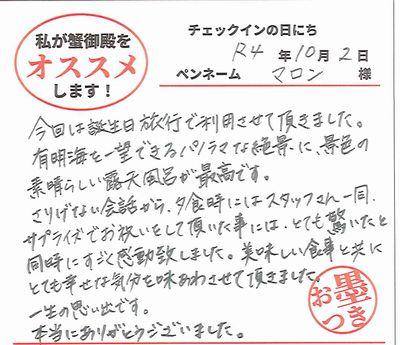 私が蟹御殿を
オススメ
します！
チェックインの日にち
R4 年 10 月 2 日
ペンネーム マロン 様
今回は誕生日旅行で利用させて頂きました。
有明海を一望できるパノラマな絶景に、景色の
素晴らしい露天風呂が最高です。
さりげない会話から、夕食時にはスタッフさん一同、
サプライズでお祝いをして頂いた事には、とても驚いたと
同時にすごく感動致しました。美味しい食事と共に
とても幸せな気分を味あわさせて頂きました。
一生の思い出です。
本当にありがとうございました。
お墨つき